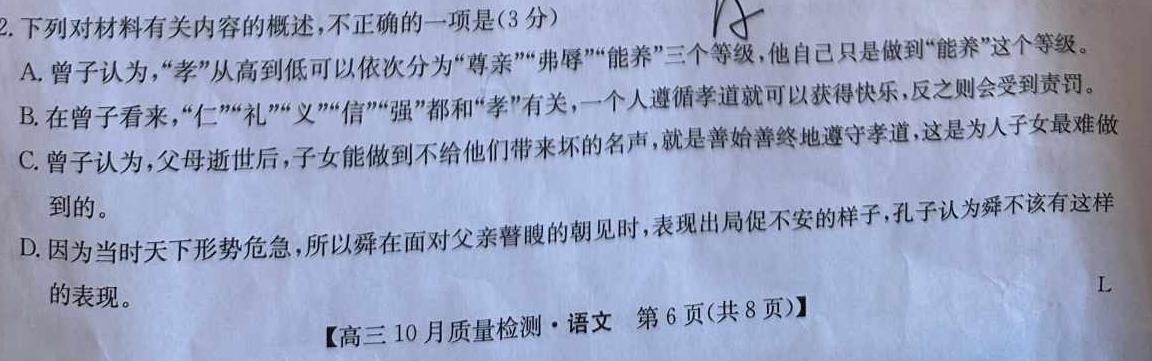 2. 下列对材料有关内容的概述,不正确的一项是(3 分)
A. 曾子认为,“孝”从高到低可以依次分为“尊亲”“弗辱”“能养”三个等级,他自己只是做到“能养”这个等级。
B. 在曾子看来,“仁”“礼”“义”“信”“强”都和“孝”有关,一个人遵循孝道就可以获得快乐,反之则会受到责罚。
C. 曾子认为,父母逝世后,子女能做到不给他们带来坏的名声,就是善始善终地遵守孝道,这是为人子女最难做
到的。
D. 因为当时天下形势危急,所以舜在面对父亲瞽瞍的朝见时,表现出局促不安的样子,孔子认为舜不该有这样
的表现。
L
【高三 10 月质量检测·语文 第 6 页(共 8 页)】